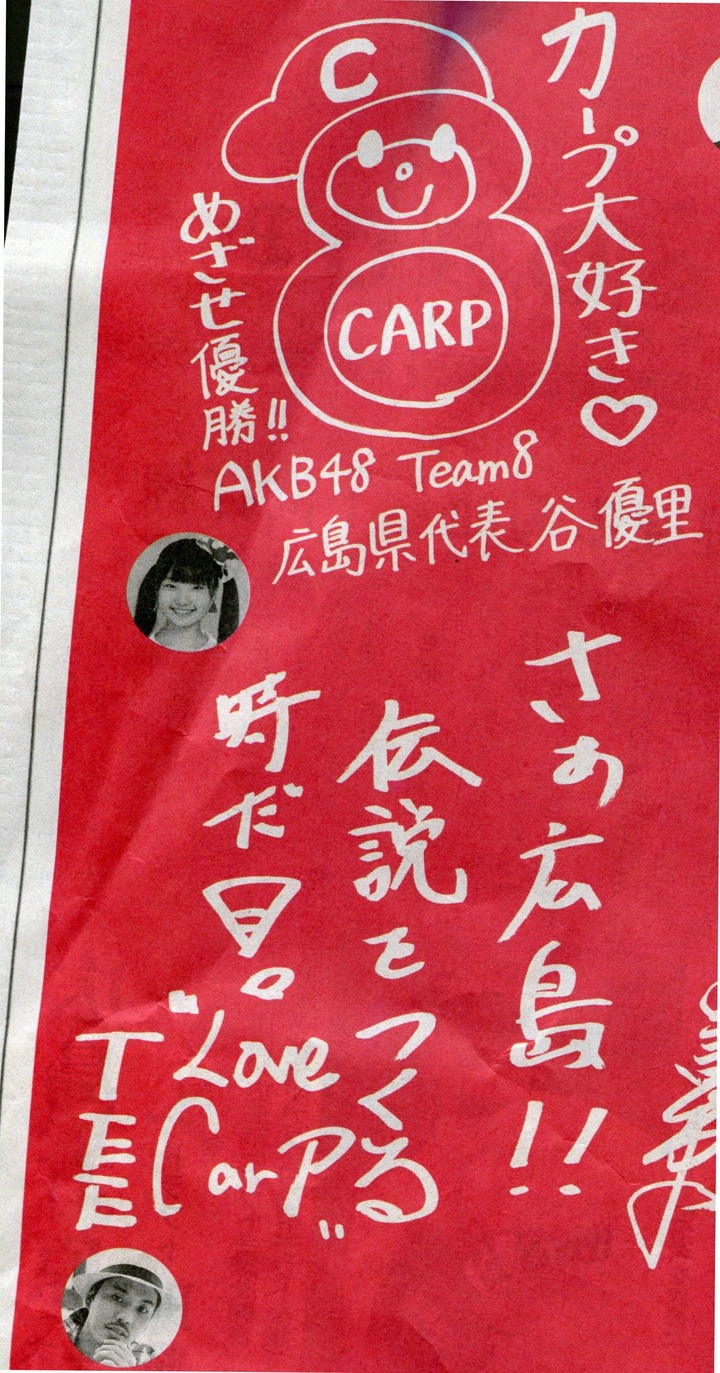 カープ大好き♡
C
CARP
めざせ優勝!!
AKB48 Team8
広島県代表 谷優里
さぁ広島!!
伝説をつくる
時だ!
"Love
CarP"
TEE